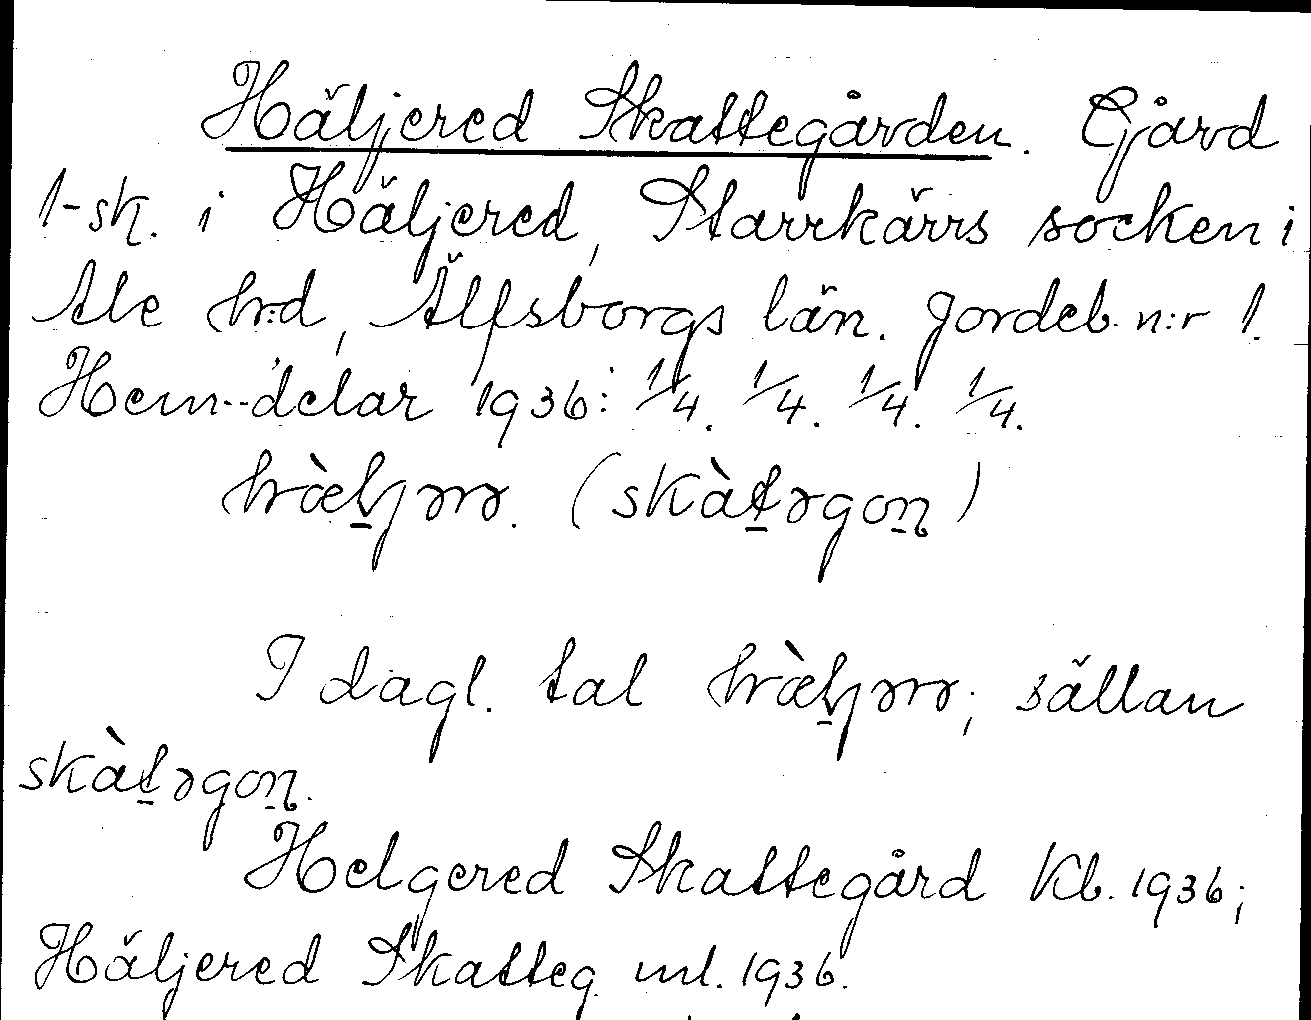 Häljered Skattegården. Gård
1-sk. i Häljered, Starrkärrs socken i
Ale hrd, Älfsborgs län. Jordeb. n:r 1.
Hem.-delar 1936: 1/4. 1/4. 1/4. 1/4.
(skàtəgon)
I dagl. tal sällan
skàtəgon.
Helgered Skattegård Kb. 1936;
Häljered Skatteg. ml. 1936.